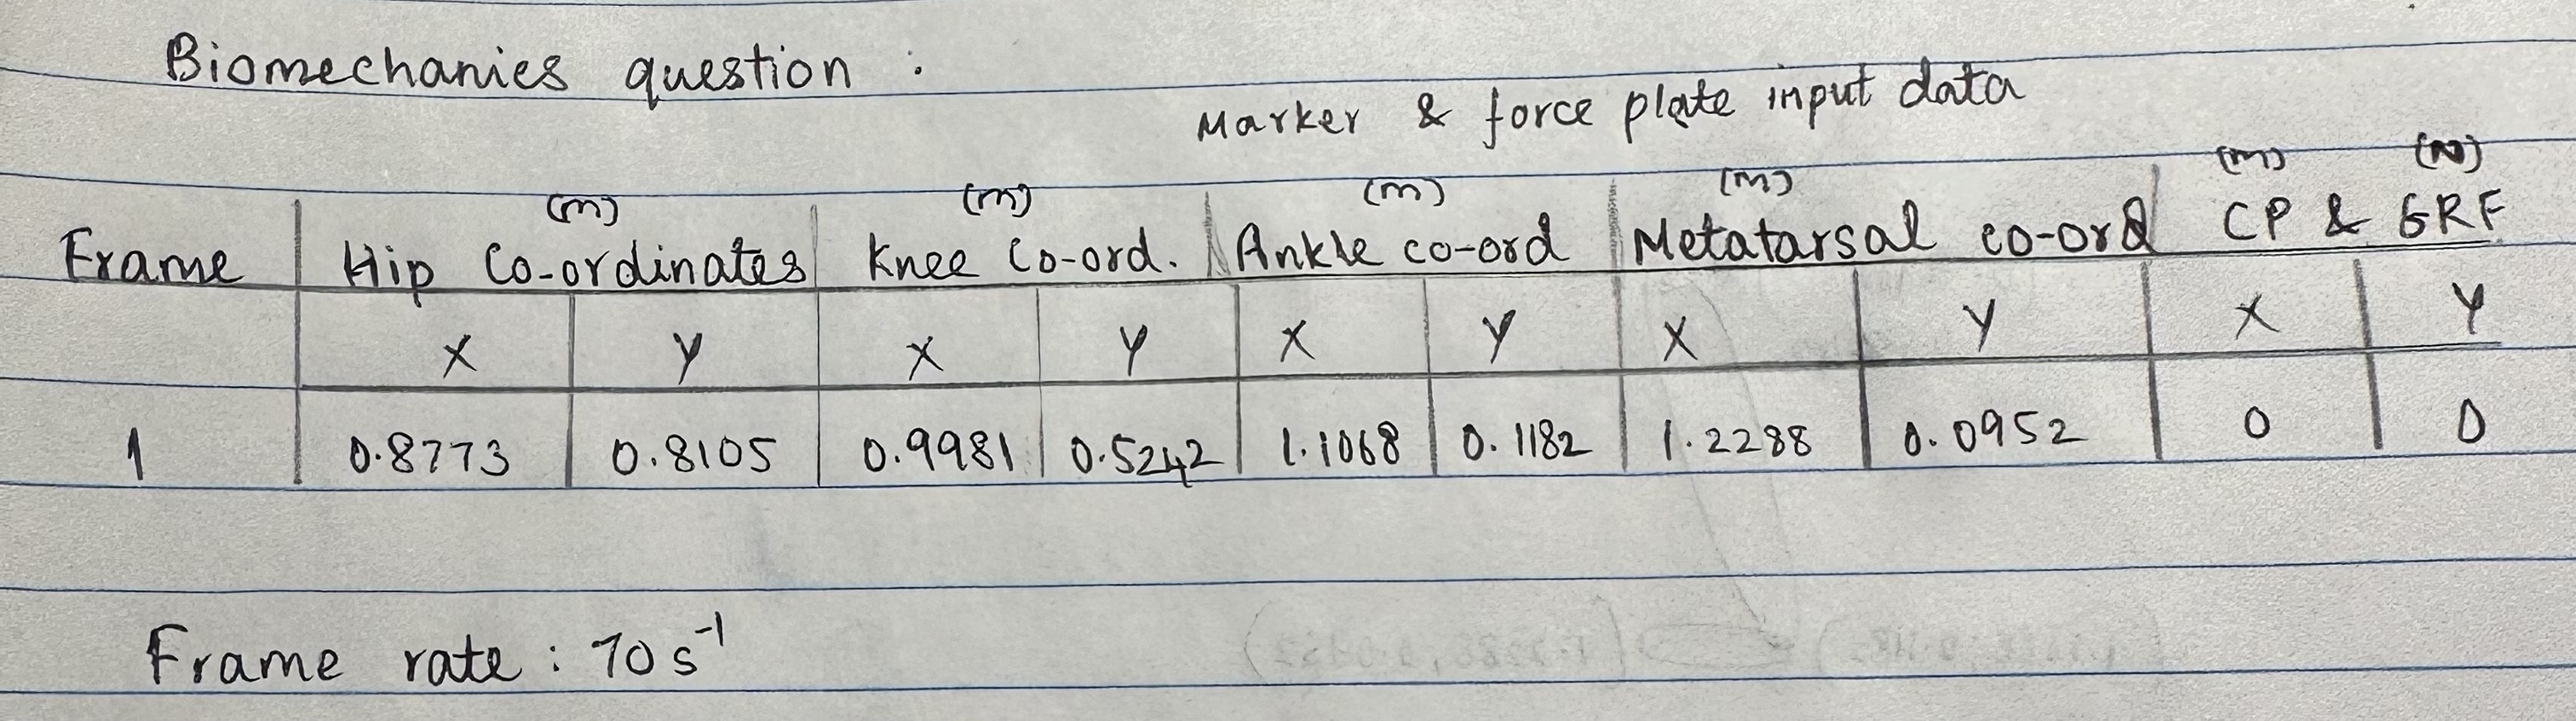 Biomechanics question :
Marker & force plate input data
(m) (m) (m) (m) (m) (N)
Frame Hip Co-ordinates Knee Co-ord. Ankle co-ord Metatarsal co-ord CP & GRF
X Y X Y X Y X Y X Y
1 0.8773 0.8105 0.9981 0.5242 1.1068 0.1182 1.2288 0.0952 0 0
Frame rate : 70 s⁻¹